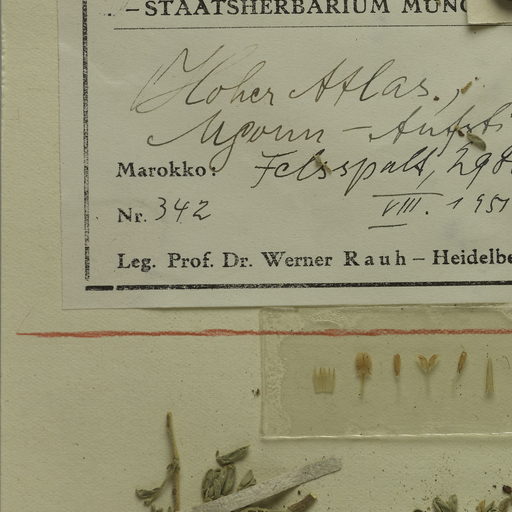 – STAATSHERBARIUM MÜNC
Hoher Atlas.,
Mgoun – Aufsti
Marokko: Felsspalt, 298
Nr. 342 VIII. 1951
Leg. Prof. Dr. Werner Rauh – Heidelbe